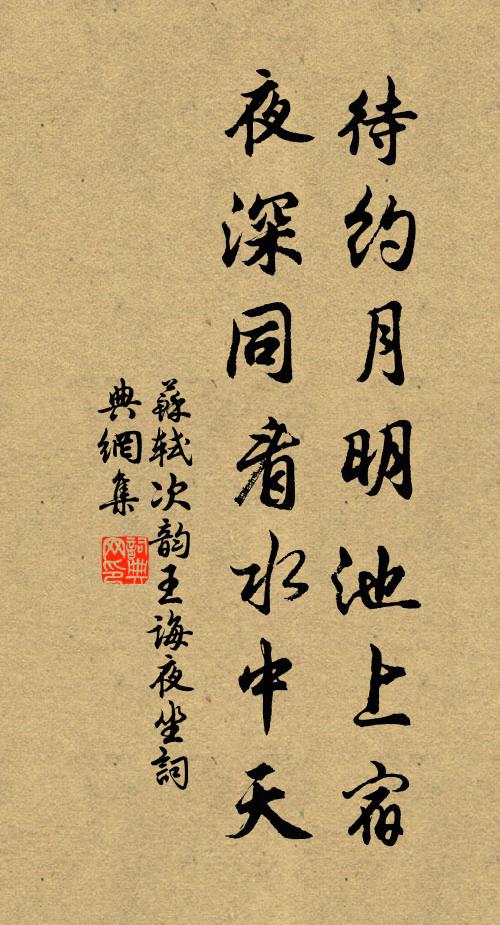 待约月明池上宿
夜深同看水中天
蘇軾次韵王诲夜坐詞
典網集
詞典網印